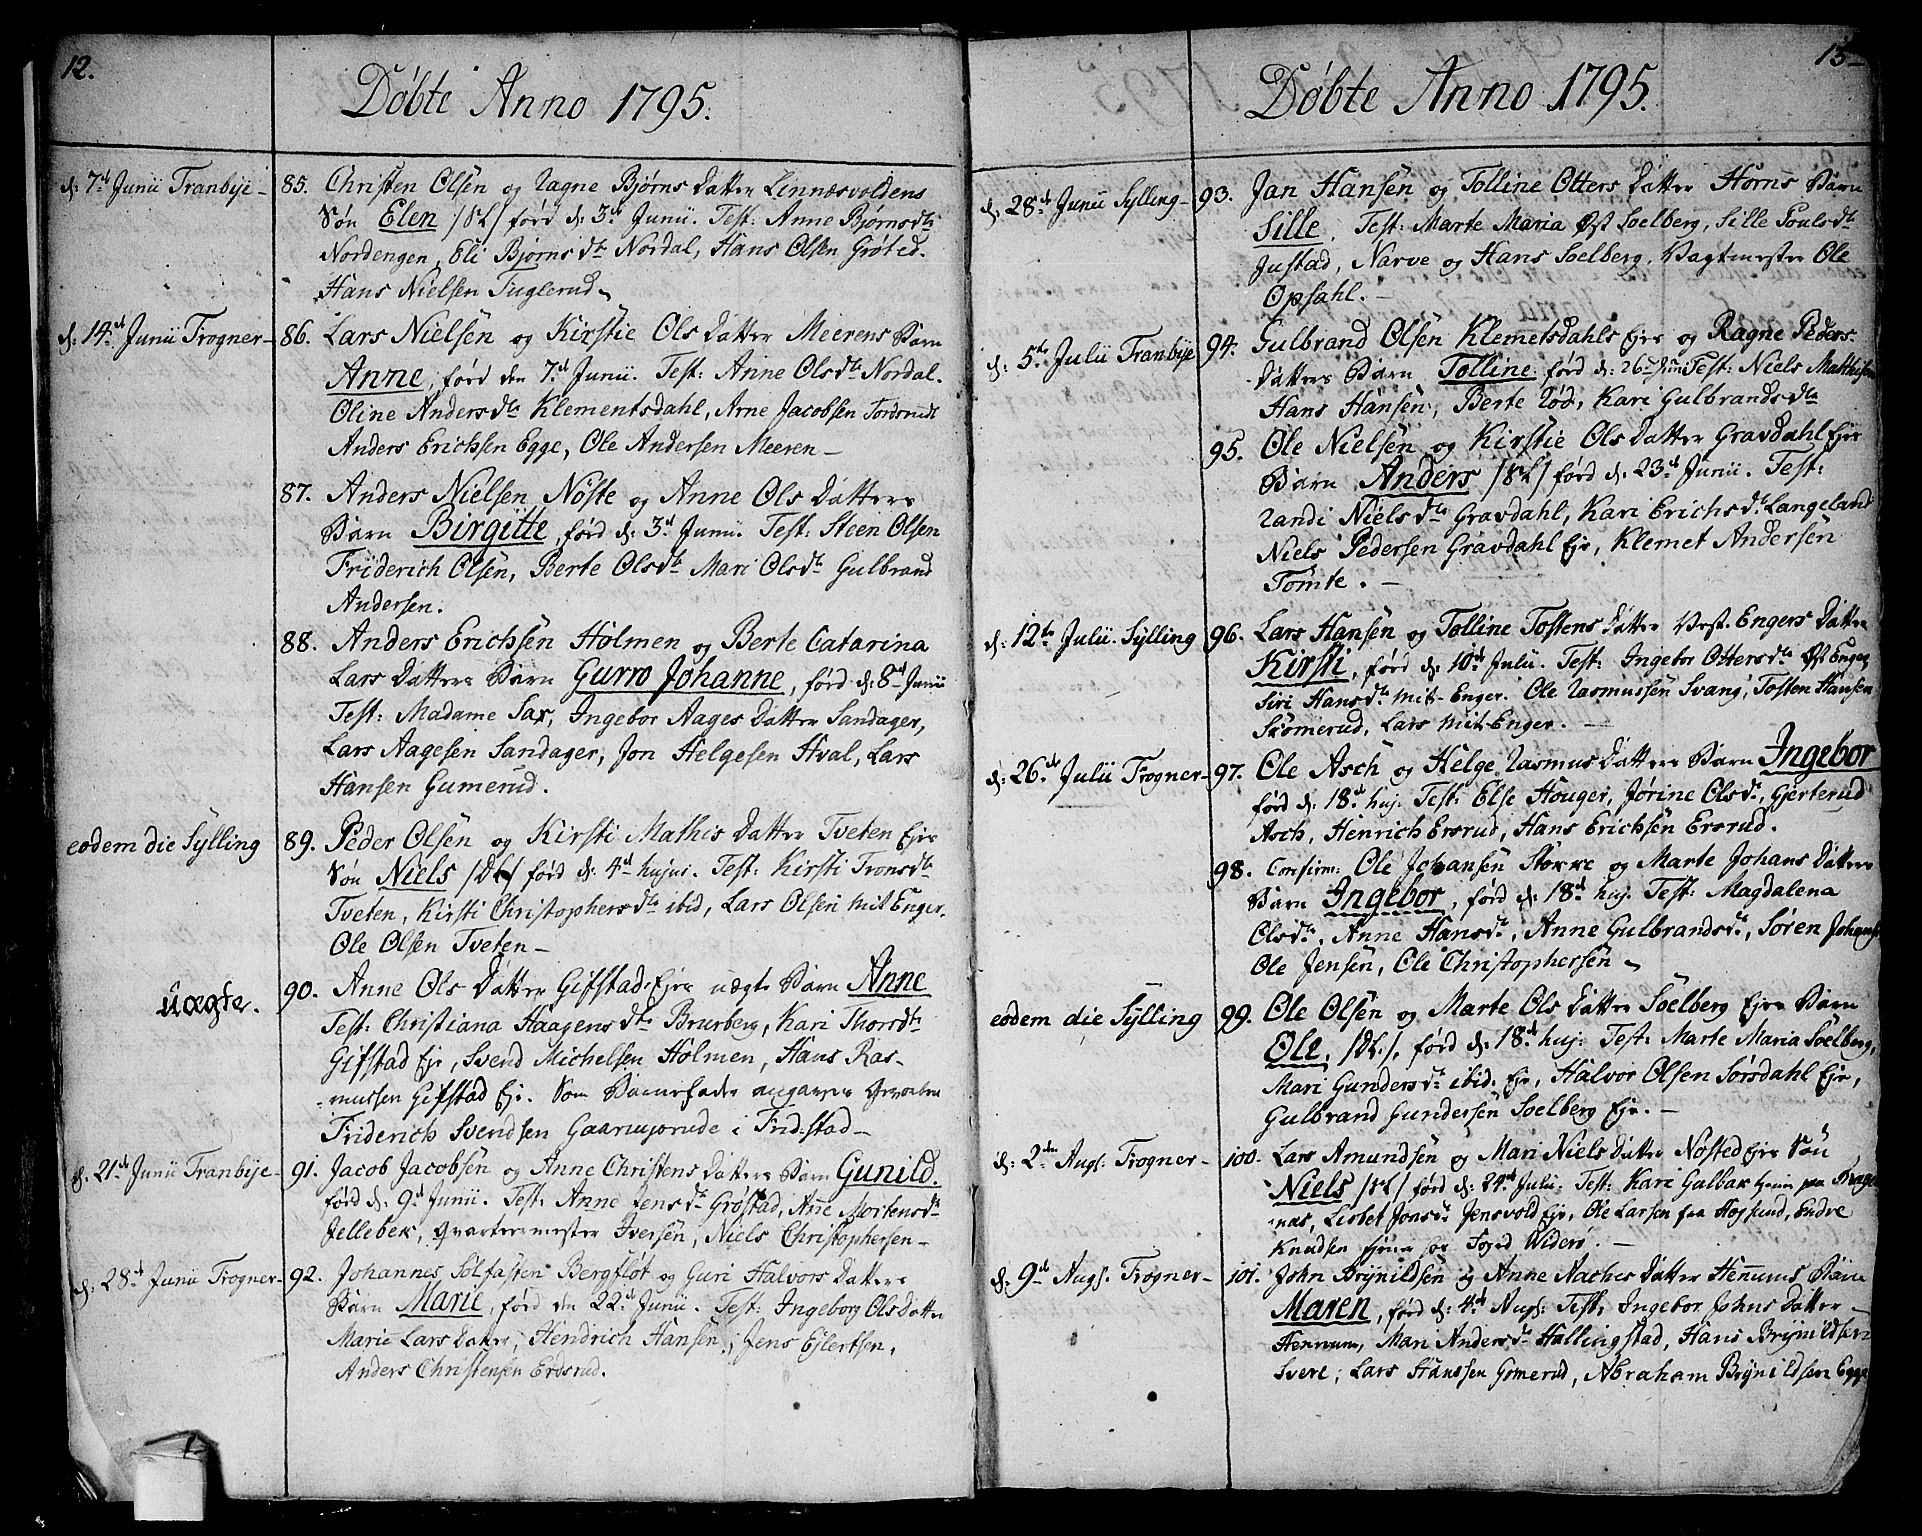 12.
Döbte Anno 1795.
d: 7de Junii Tranbye - 85. Christen Olsen og Ragne Bjørns Datter Linnæsvoldens
Søn Elen /:Rl:/ förd d: 3de Junii. Test: Anne Bjørnsdtr
Nordengen, Eli Bjørnsdtr Nordal, Hans Olsen Grøted.
Hans Nielsen Fuglerud
d: 14de Junii Frogner - 86. Lars Nielsen og Kirstie Ols Datter Meerens Barn
Anne, förd den 7de Junii. Test: Anne Olsdtr Nordal.
Oline Andersdtr Klementsdahl, Arne Jacobsen Tordsrudt
Anders Erichsen Egge, Ole Andersen Meeren -
87. Anders Nielsen Nöste og Anne Ols Datters
Barn Birgitte, förd d: 3de Junii. Test: Steen Olsen
Friderich Olsen, Berte Olsdtr Mari Olsdtr Gulbrand
Andersen.
88. Anders Erichsen Holmen og Berte Catarina
Lars Datters Barn Gurro Johanne, förd d: 8de Junii
Test: Madame Sax, Ingebor Aages Datter Sandager,
Lars Aagesen Sandager, Jon Helgesen Hval, Lars
Hansen Gumerud.
eodem die Sylling 89. Peder Olsen og Kirsti Mathis Datter Tveten Eje
Søn Niels /:Dl:/ förd d: 4de hujus. Test: Kirsti Tronsdtr
Tveten, Kirsti Christophersdtr ibid, Lars Olsen Mit Enger.
Ole Olsen Tveten -
uægte. 90. Anne Ols Datter Gifstad Ejes uægte Barn Anne
Test: Christiana Haagensdtr Brurberg, Kari Thorsdtr
Gifstad Eje, Svend Michelsen Holmen, Hans Ras-
mussen Gifstad Eje. Som Barnefader angaves
Friderich Svendsen i Fridstad -
d: 21de Junii Tranbye - 91. Jacob Jacobsen og Anne Christens Datters Barn Gunild.
förd d: 9de Junii. Test: Anne Jensdtr Gröstad, Anne Mortensdtr
Jellebek, Qvartermester Iversen, Niels Christophersen -
d: 28de Junii Frogner - 92. Johannes Solfasten Bergflöt og Guri Halvors Datters
Barn Marie, förd den 22de Junii. Test: Ingeborg Ols Datter
Marie Lars Datter, Hendrich Hansen, Jens Ejlertsen,
Anders Christensen Erdsrud.
13
Döbte Anno 1795.
d: 28de Junii Sylling - 93. Jan Hansen og Tolline Otters Datter Horns Barn
Sille. Test: Marte Maria Öst Soelberg, Sille Poulsdtr
Justad, Narve og Hans Soelberg, Vagtmester Ole
Opsahl. -
d: 5te Julii Tranbye 94. Gulbrand Olsen Klemetsdahls Eje og Ragne Peders-
Datters Barn Tolline förd d: 26 Junii Test: Niels Matthisen
Hans Hansen, Berte Röd, Kari Gulbrandsdtr
95. Ole Nielsen og Kirstie Ols Datter Gravdahl Ejes
Barn Anders /:Rl:/ förd d: 23de Junii. Test:
Randi Nielsdtr Gravdahl, Kari Erichsdtr Langeland
Niels Pedersen Gravdahl Eje, Klemet Andersen
Tomte. -
d: 12te Julii Sylling 96. Lars Hansen og Tolline Tostens Datter Vest Engers Datter
Kirsti, förd d: 10de Julii. Test: Ingebor Ottersdtr Öst Enger
Siri Hansdtr Mit-Enger. Ole Rasmussen Svang, Tosten Hansen
Skömerud, Lars Mit-Enger. -
d: 26de Julii Frogner - 97. Ole Asch og Helge Rasmus Datters Barn Ingebor
förd d: 18de huj. Test: Else Houger, Jörine Olsdtr Gjerterud
Asch, Henrich Ersrud, Hans Erichsen Ersrud.
98. Ole Johansen Stokke og Marte Johans Datters
Barn Ingebor, förd d: 18de huj. Test: Magdalena
Olsdtr, Anne Hansdtr, Anne Gulbrandsdtr, Sören Johans
Ole Jensen, Ole Christophersen
eodem die Sylling 99. Ole Olsen og Marte Ols Datter Soelberg Ejes Barn
Ole, /:Dl:/, förd d: 18de huj: Test: Marte Maria Soelberg,
Mari Gundersdtr ibid. Eje, Halvor Olsen Sorsdahl Eje,
Gulbrand Gundersen Soelberg Eje. -
d: 2den Augs. Frogner - 100. Lars Amundsen og Mari Niels Datter Nösted Ejes Søn
Niels /:Rl:/ förd d: 24de Julii. Test: Kari Galbak paa Brage
næs, Lisbet Jonsdtr Jensvold Eje, Ole Larsen fra Hogsund, Endre
Knudsen tjener hos Foged Widerö. -
d: 9de Augs. Frogner - 101. John Brynildsen og Anne Aaches Datter Hennums Barn
Maren, förd d: 4de Augs: Test: Ingebor Johns Datter -
Hennum, Mari Andersdtr Hallingstad, Hans Brynildsen
Svere, Lars Hanssen Gomerud, Abraham Brynildsen Egge